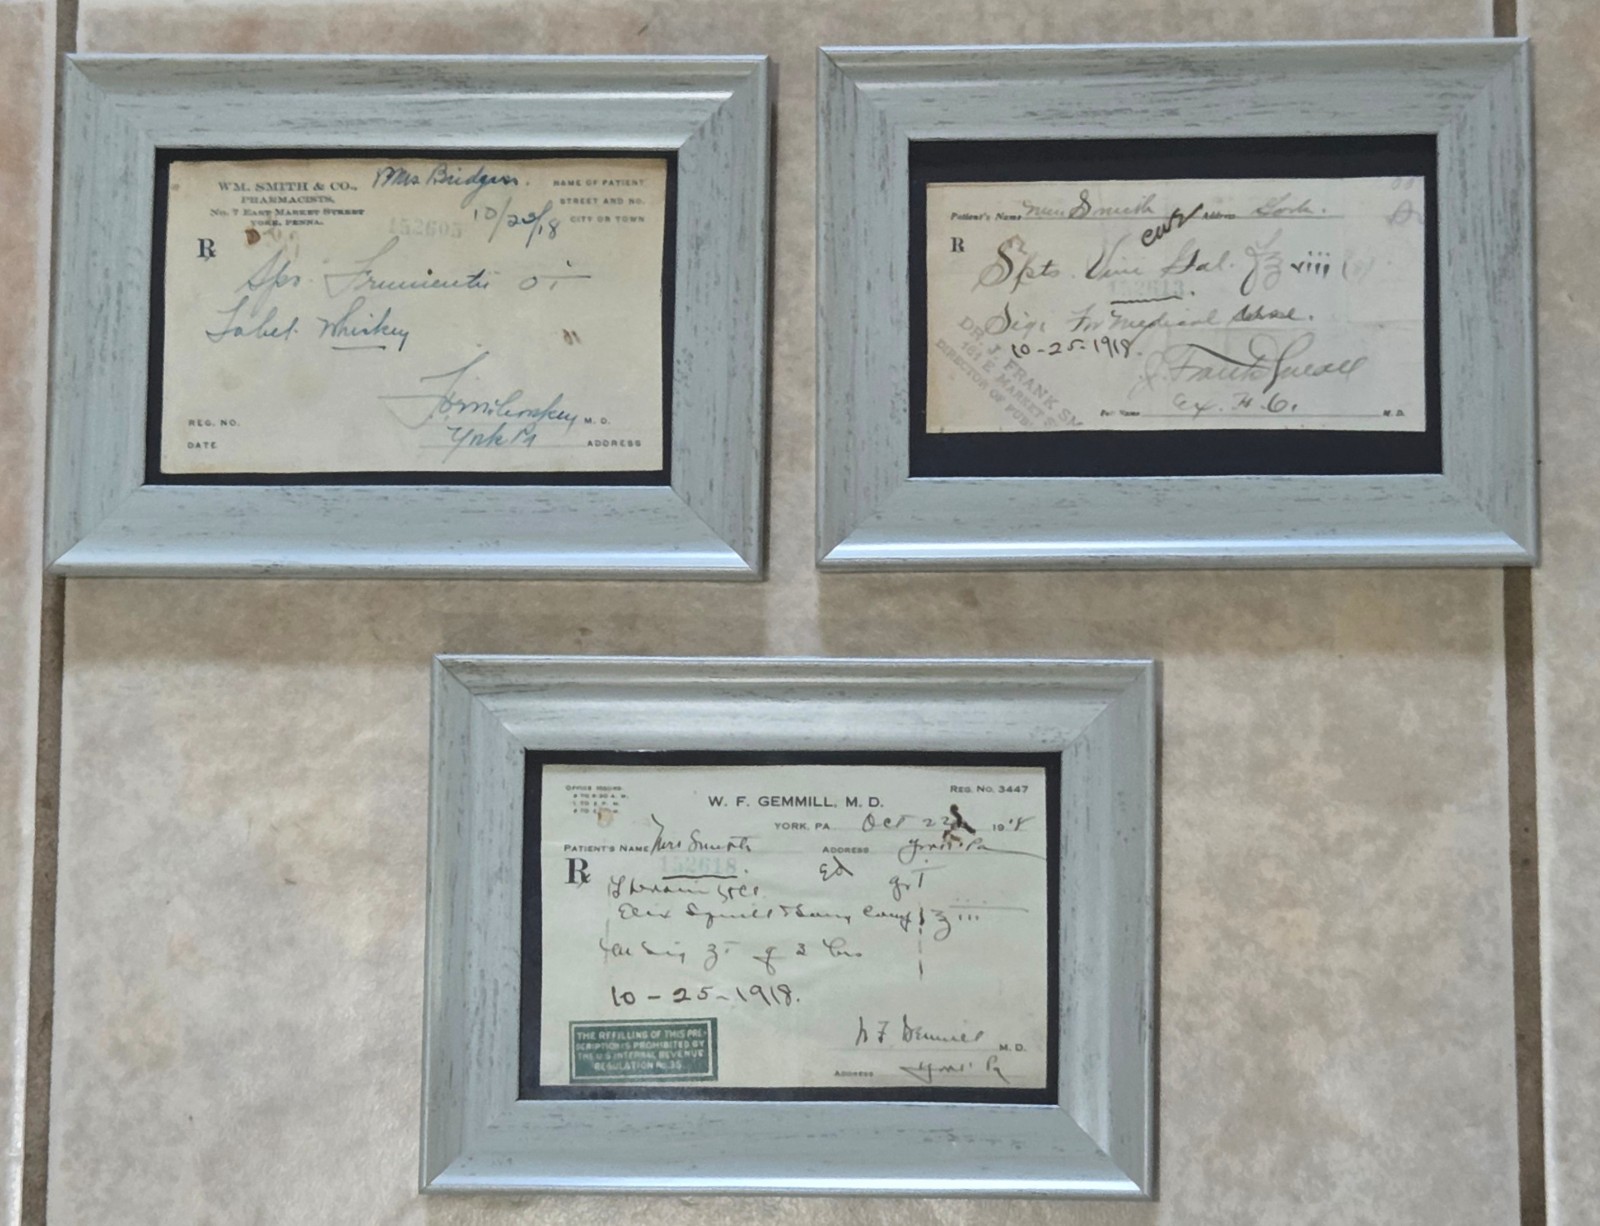 WM. SMITH & CO.,
PHARMACISTS,
No. 7 EAST MARKET STREET
YORK, PENNA.
Mrs
NAME OF PATIENT
STREET AND NO.
CITY OR TOWN
152605
10/23/18
℞
Sps. Frumenti Oi
Label Whiskey
REG. NO.
M. D.
DATE
York Pa
ADDRESS
Patient's Name Mrs Smith Address York.
℞
Spts. Vini Gal. ℥ viii
152613
Sig: For medical use.
10-25-1918.
DR. J. FRANK SM
161 E. MARKET S
DIRECTOR OF PUB
J. Frank Small
Per Name
M. D.
OFFICE HOURS:
W. F. GEMMILL, M. D.
REG. NO. 3447
YORK, PA Oct 1918
PATIENT'S NAME Mrs Smith ADDRESS York Pa
152618
℞
Heroin gr i
Elix ℥ iii
Sig ʒi q 3 hrs
10-25-1918.
THE REFILLING OF THIS PRE-
SCRIPTION IS PROHIBITED BY
THE U S INTERNAL REVENUE
REGULATION No. 35.
W F Gemmill M. D.
ADDRESS York Pa